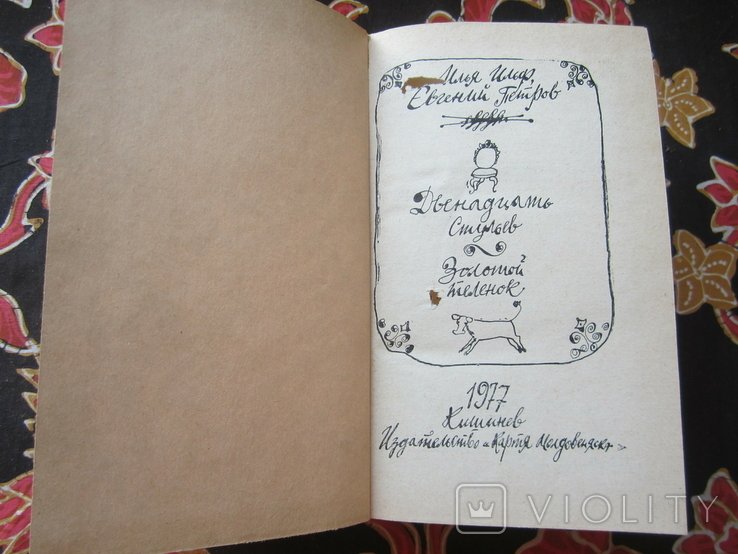 Илья Ильф,
Евгений Петров
Двенадцать
стульев
Золотой
теленок
1977
Кишинев
Издательство «Картя Молдовеняскэ»
VIOLITY